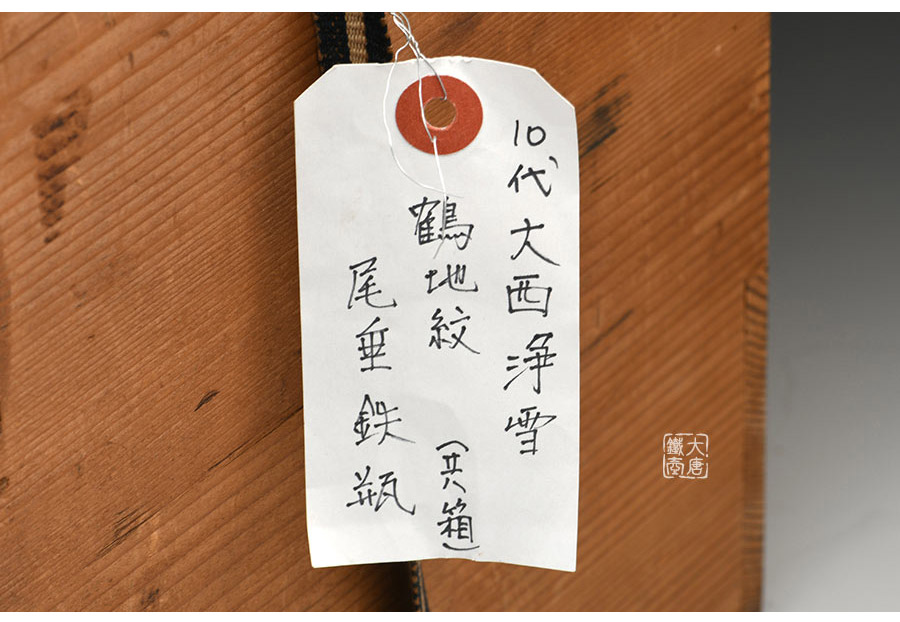 10代大西浄雪
鶴地紋
(共箱)
尾垂鉄瓶
大唐
鐵壺